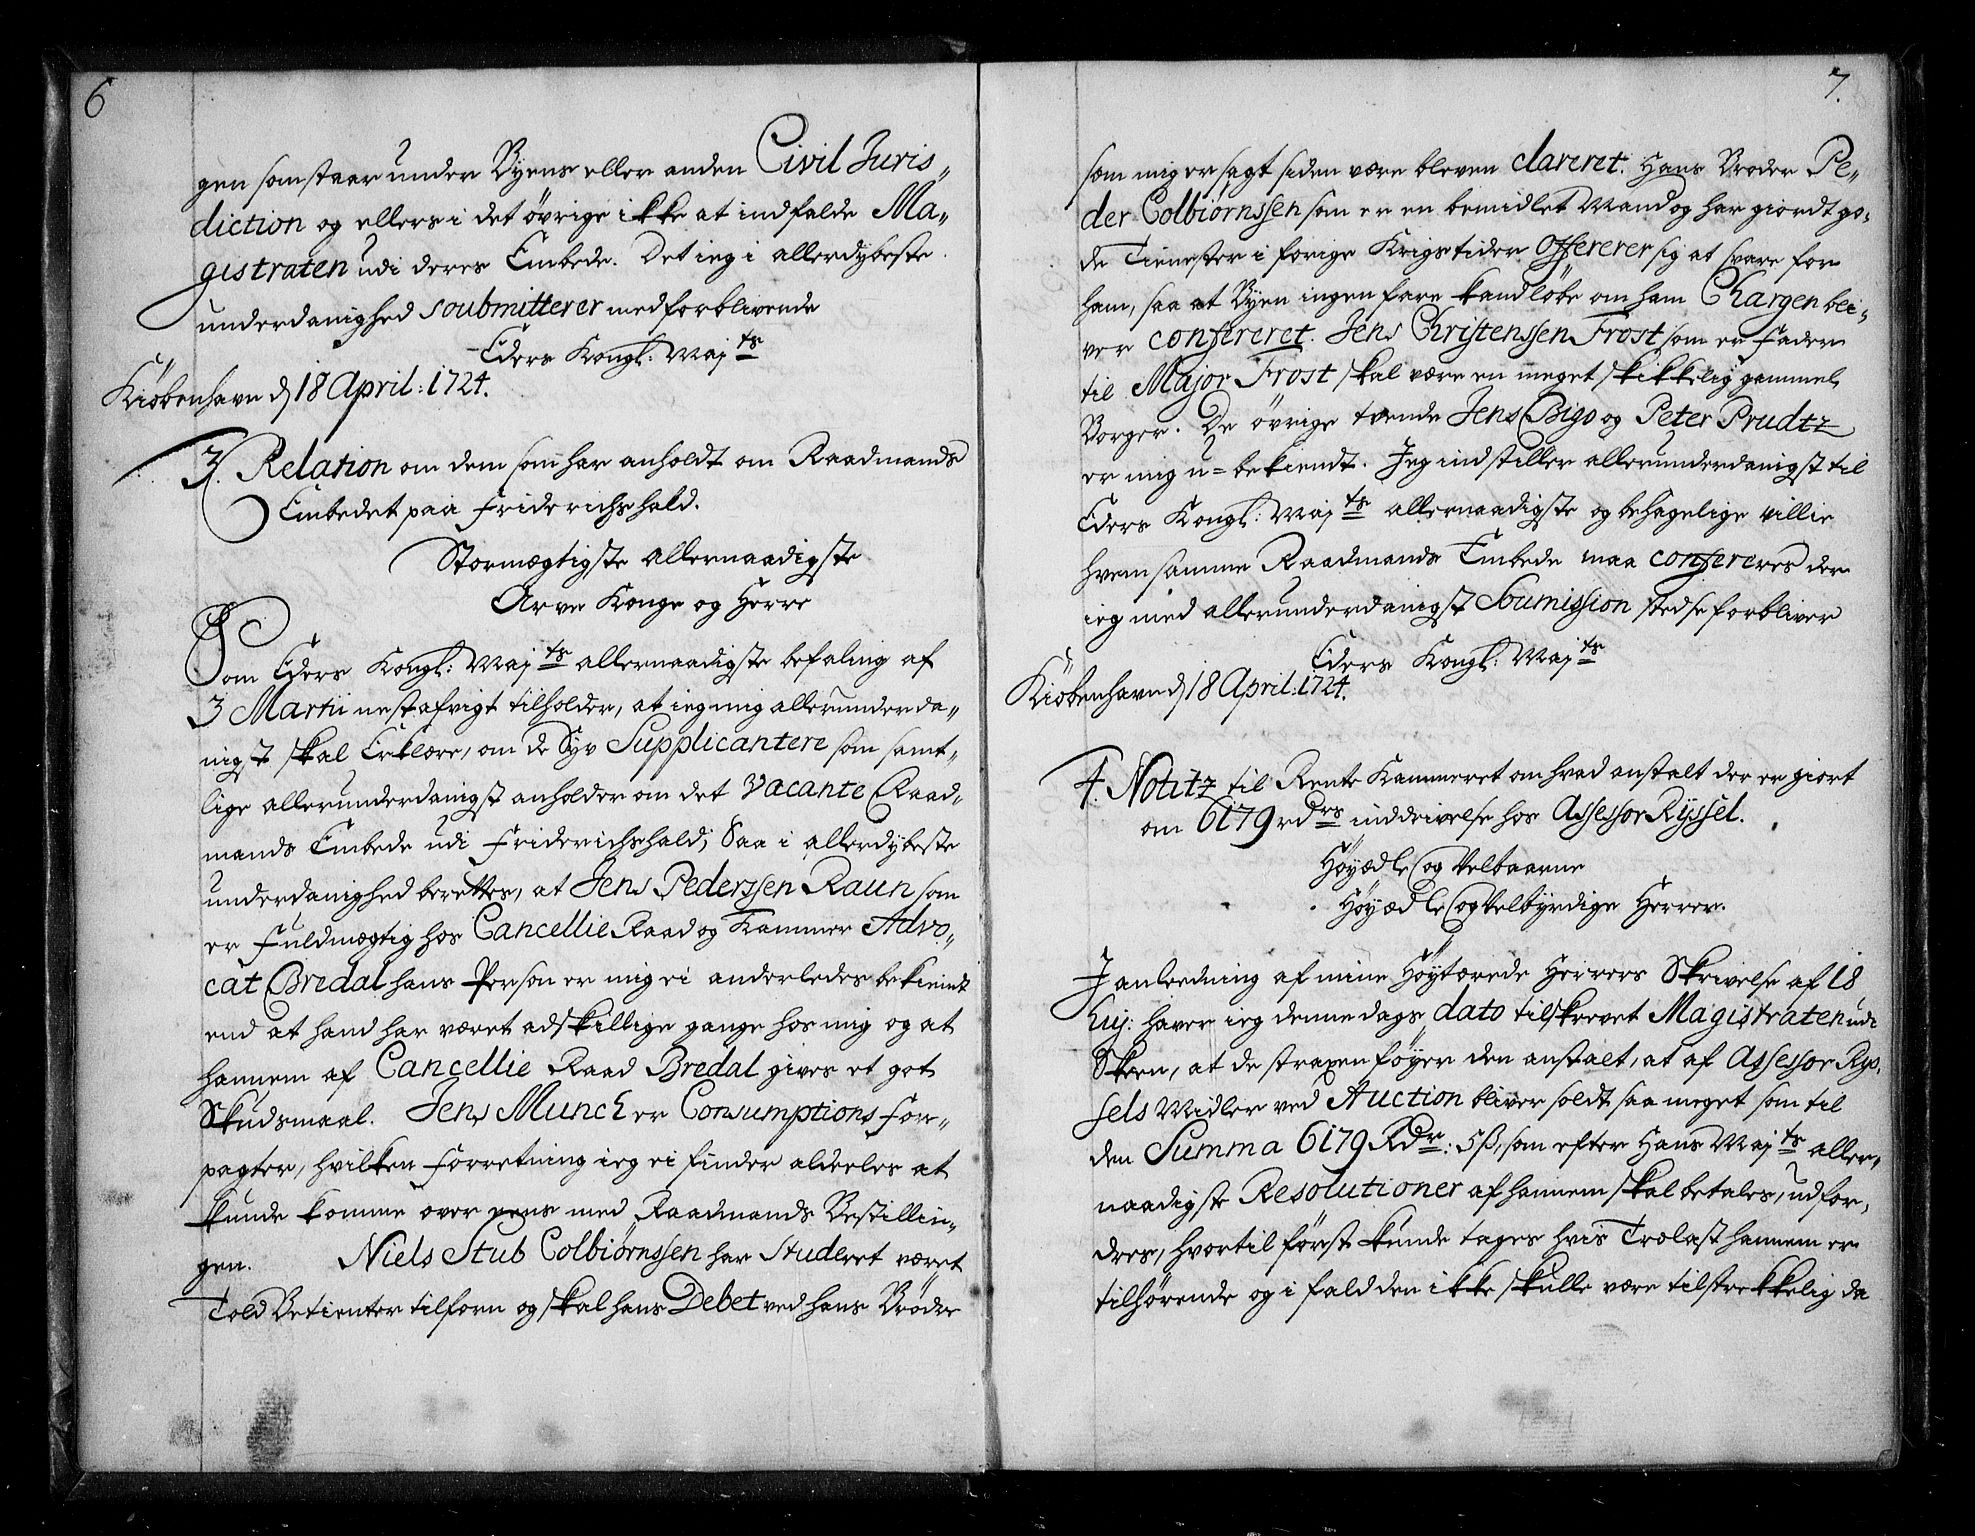 6
gen som staar under Byens eller anden Civil Juris„
diction og ellers i det övrige ikke at indfalde Ma„
gistraten udi deres Embede. Det ieg i allerdybeste
underdanighed soubmitterer med forblivende
Eders Kongl: Maj ts
Kiöbenhavn d 18 April: 1724.
3. Relation om dem som har anholdt om Raadmands
Embedet paa Friderichshald.
Stormægtigste Allernaadigste
Arve Konge og Herre
Som Eders Kongl: Maj ts allernaadigste befaling af
3 Martii nestafvigt tilholder, at ieg mig allerunderda„
nigst skal Erklære, om de Syv Supplicantere som samt„
lige allerunderdanigst anholder om det Vacante Raad„
mands Embede udi Friderichshald; Saa i allerdybeste
underdanighed berettes, at Jens Pederssen Raun som
er Fuldmægtig hos Cancellie Raad og Kammer Advo„
cat Bredal hans Person er mig ei anderledes bekiendt
end at hand har været adskillige gange hos mig og at
hannem af Cancellie Raad Bredal gives et got
Skudsmaal. Jens Munch er Consumptions For„
pagter, hvilken Forretning ieg ei finder aldeeles at
kunde komme over eens med Raadmands Bestillin„
gen. Niels Stub Colbiørnssen har Studeret været
Told Betienter tilforn og skal hans Debet ved hans Brödre
7.
som mig er sagt siden være bleven clareret. Hans Broder Pe„
der Colbiørnssen som er en bemidlet Mand og har giordt go„
de Tienester i forige Krigstider offererer sig at svare for
ham, saa at Byen ingen fare kand löbe om ham Chargen bli„
ver confereret. Jens Christenssen Frost som er Fader
til Major Frost skal være en meget skikkelig gammel
Borger. De övrige tvende Jens Bigo og Peter Prudtz
er mig u=bekiendt. Jeg indstiller allerunderdanigst til
Eders Kongl: Maj ts allernaadigste og behagelige villie
hvem samme Raadmands Embede maa confereres der
ieg med allerunderdanigst Soumission stedse forbliver
Eders Kongl: Maj ts
Kiöbenhavn d 18 April: 1724.
4. Notitz til Rente Kammeret om hvad anstalt der er giort
om 6179 rdrs inddrivelse hos Assessor Ryssel.
Höyædle og Velbaarne
Höyædle og Velbyrdige Herrer.
I anleedning af mine Höytærede Herrers Skrivelse af 18
huj: haver ieg denne dags dato tilskrevet Magistraten udi
Skeen, at de straxen föyer den anstalt, at af Assessor Rys„
sels Midler ved Auction bliver soldt saa meget som til
den Summa 6179 Rdr: 5 ß, som efter Hans Maj ts aller„
naadigste Resolutioner af hannem skal betales, udfor„
dres, hvortil först kunde tages hvis Trælast hannem er
tilhörende og i fald den ikke skulle være tilstrekkelig da